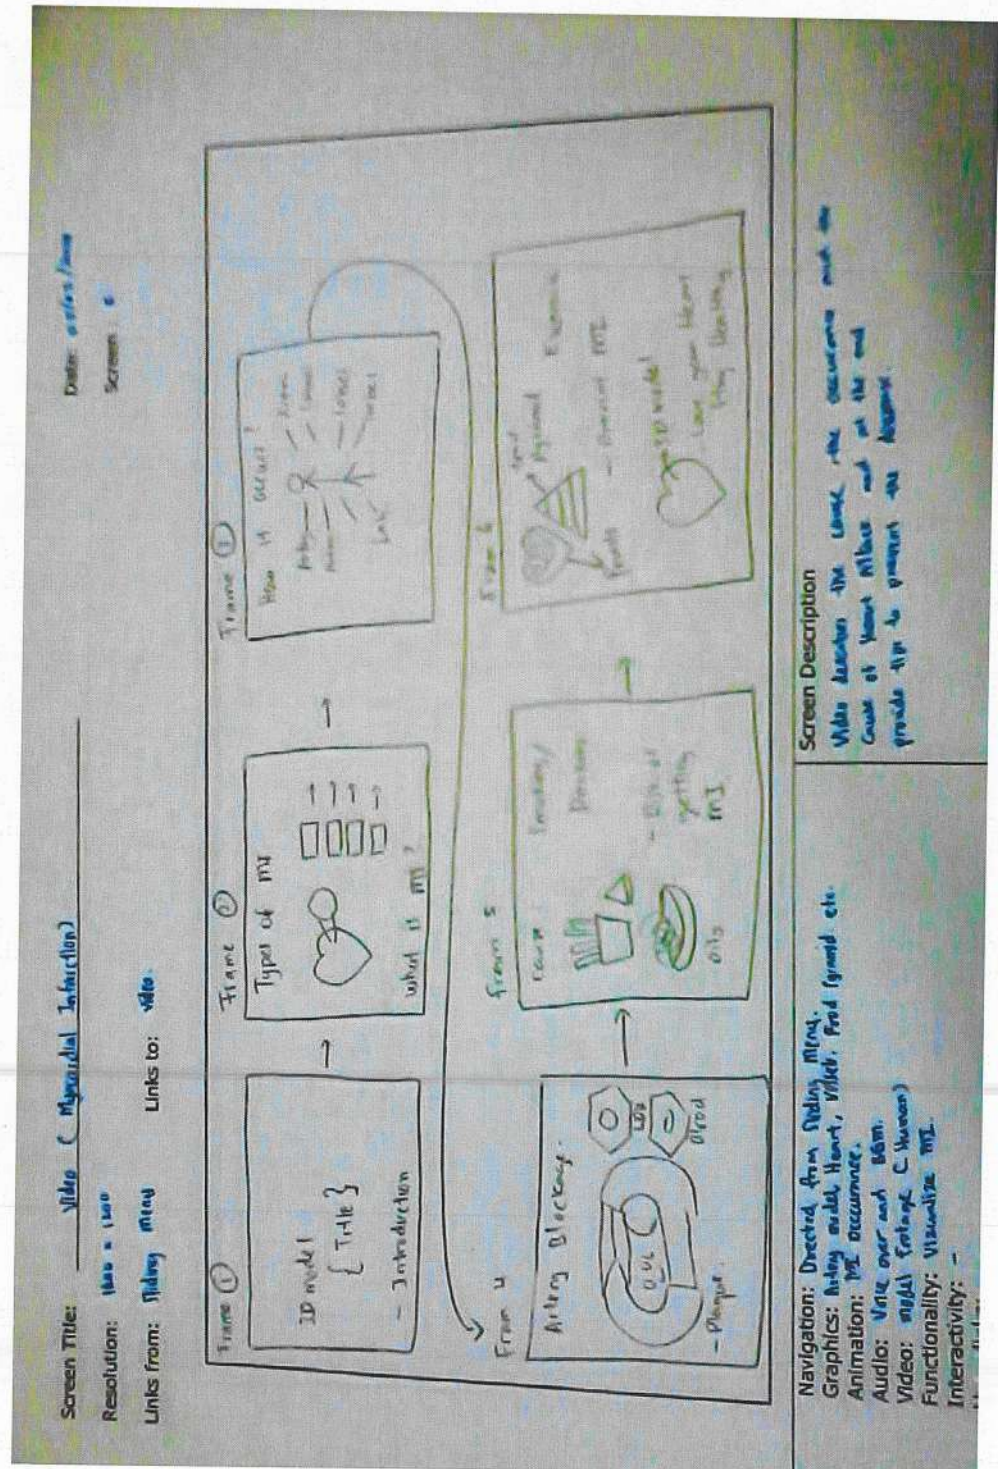 Screen Title: Video ( Myocardial Infarction)
Date:
Resolution:
Screen:
Links from: Sliding menu Links to: video.
Frame ①
3D model
{ Title }
- Introduction
Frame ②
Types of MI
what is MI?
Frame ③
How it occurs?
Fram 4
Artery Blockage.
- Plaque.
LDL
Blood
Fram 5
Smoking/
- Risk of
getting
MI.
oils
Fram 6
Pyramid
Exercise
Foods
- Prevent MI
3D model
Love your Heart
Stay Healthy
Navigation: Directed from Sliding Menu.
Graphics: Artery model, Heart, Food Pyramid etc.
Animation: MI occurrence.
Audio: Voice over and BGM.
Video: model Footage ( Human)
Functionality: Visualize MI.
Interactivity: -
Screen Description
Video describes the cause, the occurrence and the
cause of Heart Attack and at the end
provide tips to prevent the